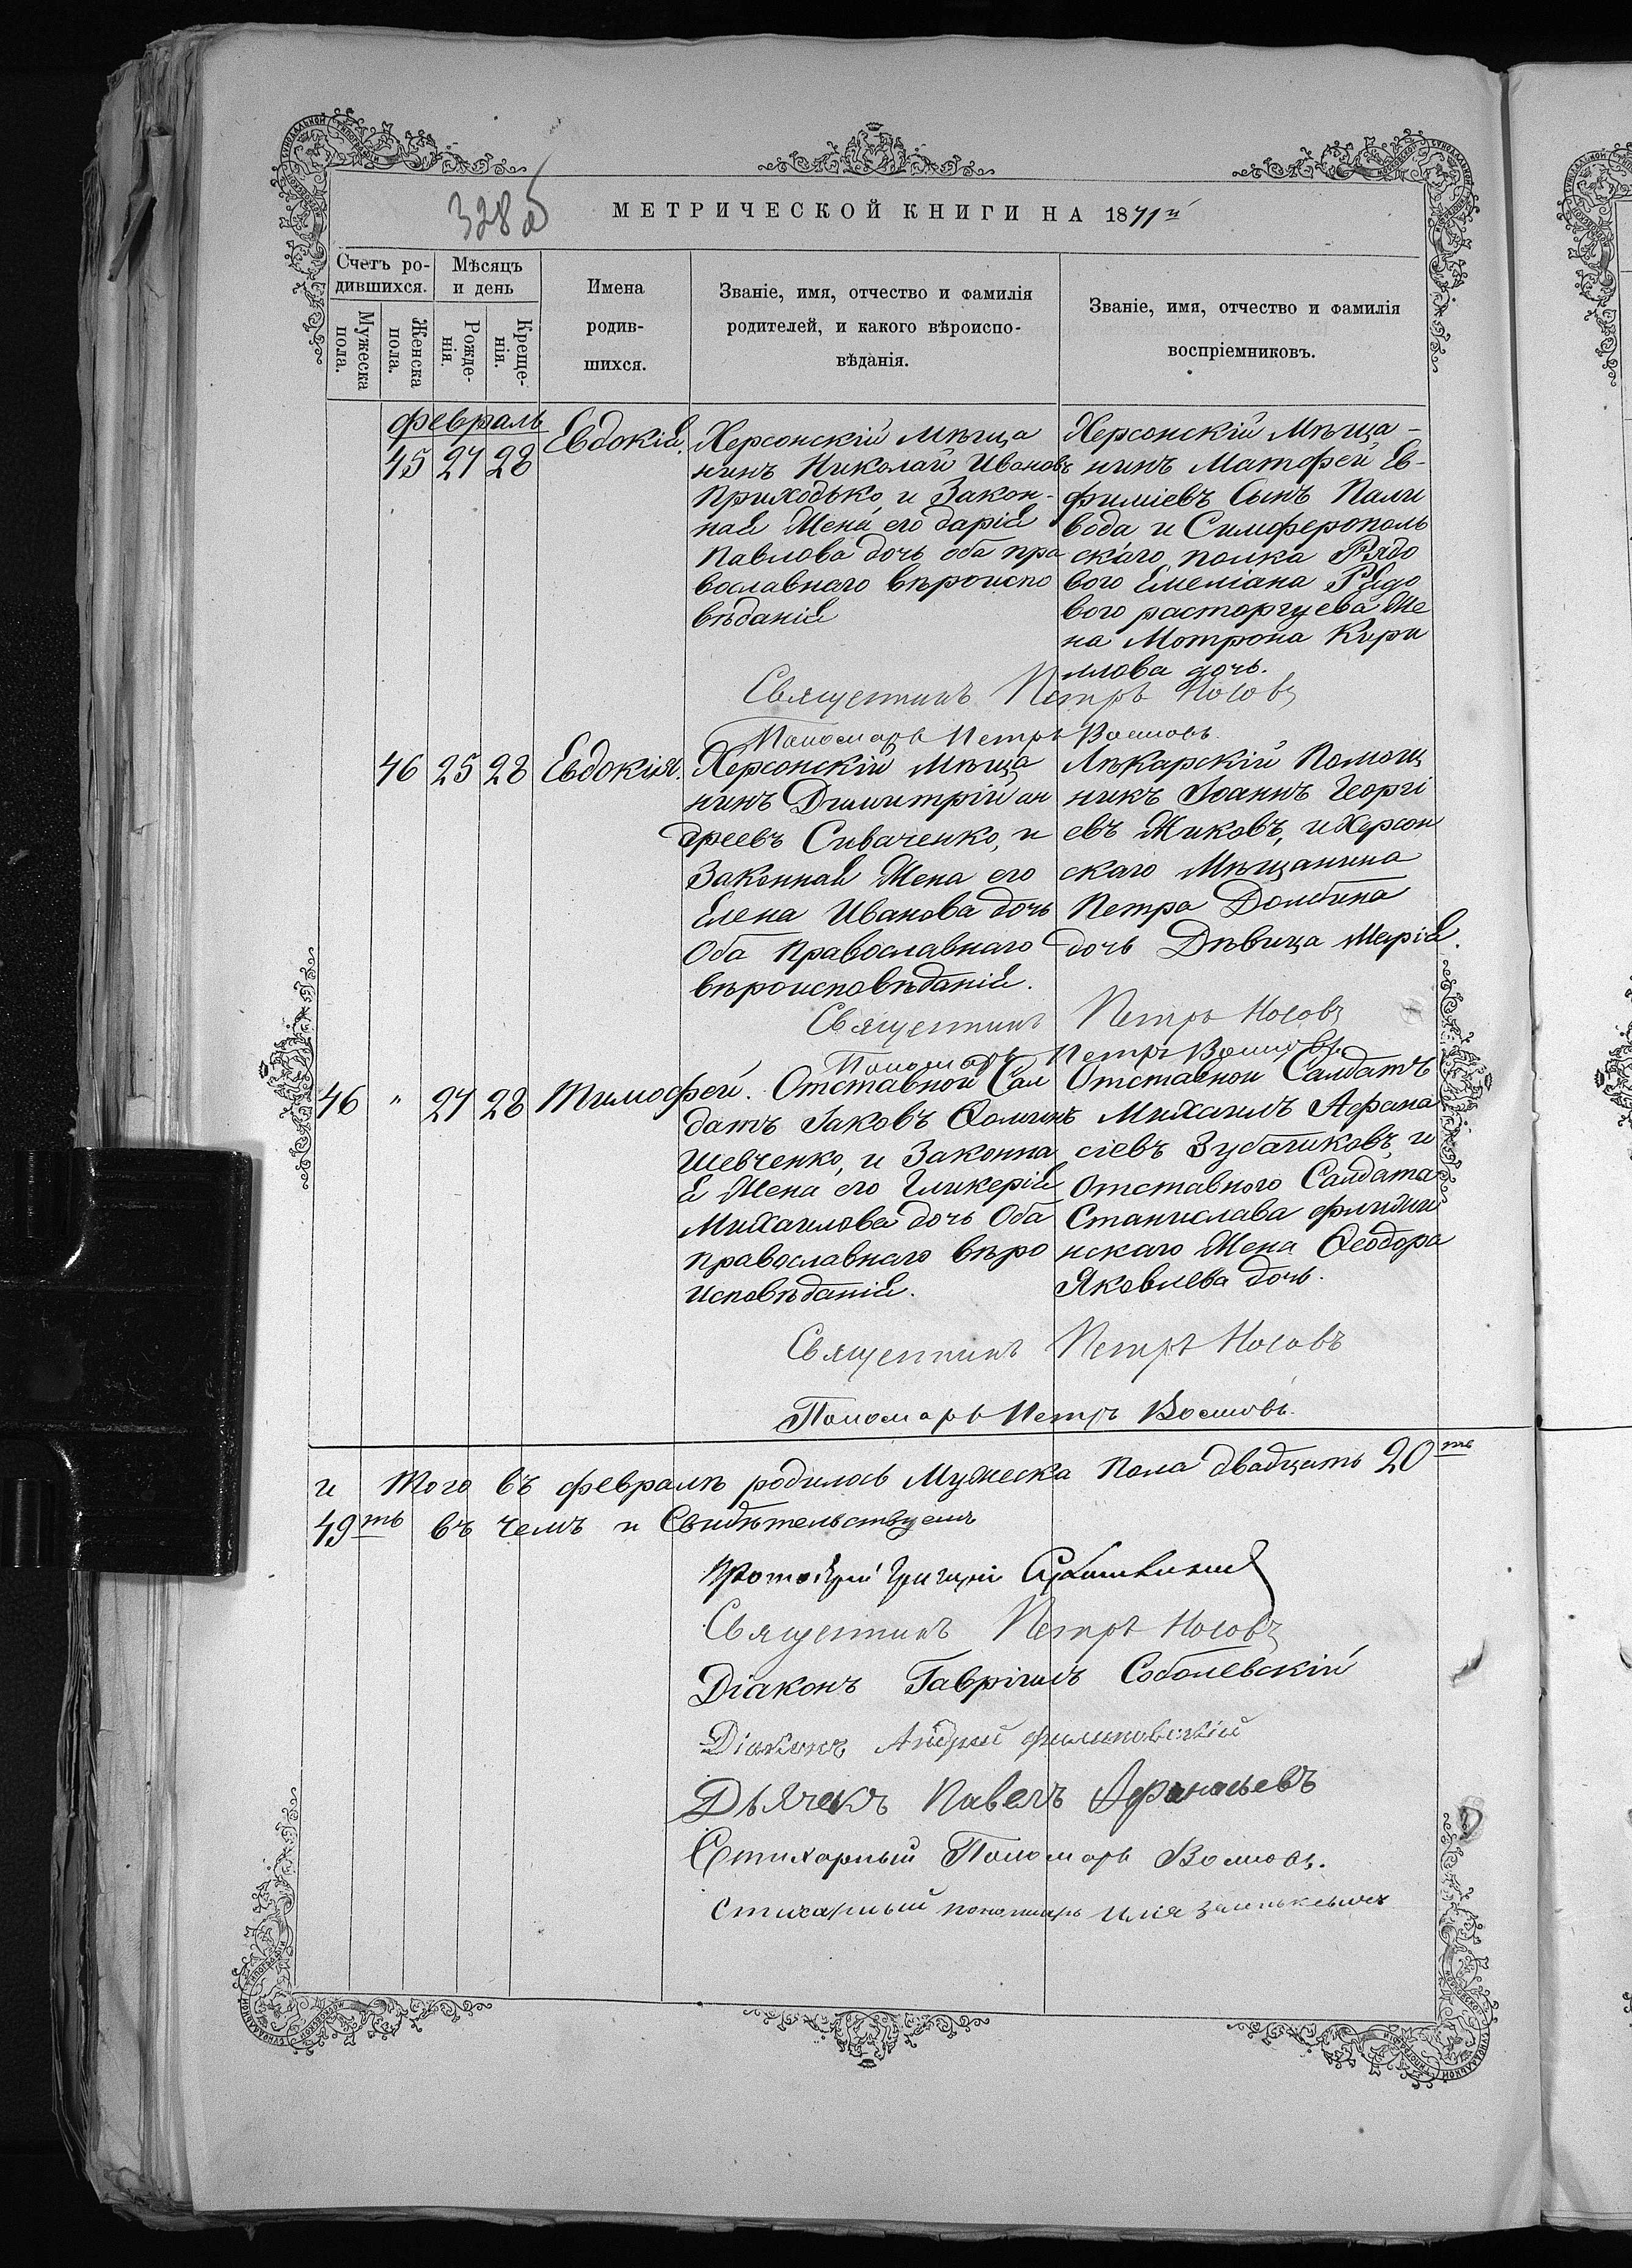 328 об
МЕТРИЧЕСКОЙ КНИГИ НА 1871й
Счетъ ро-
дившихся.
Мѣсяцъ
и день
Мужеска
пола.
Женска
пола.
Рожде-
нія.
Креще-
нія.
Имена
родив-
шихся.
Званіе, имя, отчество и фамилія
родителей, и какого вѣроиспо-
вѣданія.
Званіе, имя, отчество и фамилія
воспріемниковъ.
февраль
45 27 28 Евдокія.
Херсонскій Мѣща
нинъ Николай Ивановъ
Приходько и Закон-
ная Жена его дарія
Павлова дочь оба пра
вославнаго вѣроиспо
вѣданія
Херсонскій Мѣща-
нинъ Матфей Ев-
фиміевъ Сынъ Пали
вода и Симферополь
скаго полка Рядо
вого Емеліана Рядо
вого расторгуева Же
на Мотрона Кири
ллова дочь.
Священникъ Петръ Носовъ
Пономарь Петръ
46 25 28 Евдокія.
Херсонскій Мѣща
нинъ Димитрій ан
дреевъ Сиваченко, и
Законная Жена его
Елена Иванова дочь
Оба Православнаго
вѣроисповѣданія.
Лѣкарскій Помощ
никъ Іоаннъ Георгі
евъ Жиковъ, и Херсон
скаго Мѣщанина
Петра Домбина
дочь Дѣвица Марія.
Священникъ Петръ Носовъ
Пономарь Петръ
46 " 27 28 Тимофей.
Отставной Сал
датъ Іаковъ Ѳоминъ
Шевченко, и Законна
я Жена его Гликерія
Михаилова дочь Оба
Православнаго вѣро
исповѣданія.
Отставной Салдатъ
Михаилъ Афана
сіевъ Зубатиковъ, и
Отставного Салдата
Станислава
нскаго Жена Ѳеодора
Яковлева дочь.
Священникъ Петръ Носовъ
Пономарь Петръ
и Того въ февралѣ родилось Мужеска Пола двадцать 20ть
49ть въ чемъ и Свидѣтельствуемъ
Протоіерей Григорій
Священникъ Петръ Носовъ
Діаконъ Гавріилъ Соболевскій
Діаконъ Андрей
Дьячекъ Павелъ Афанасьевъ
Стихарный Пономарь
стихарный пономарь Илія